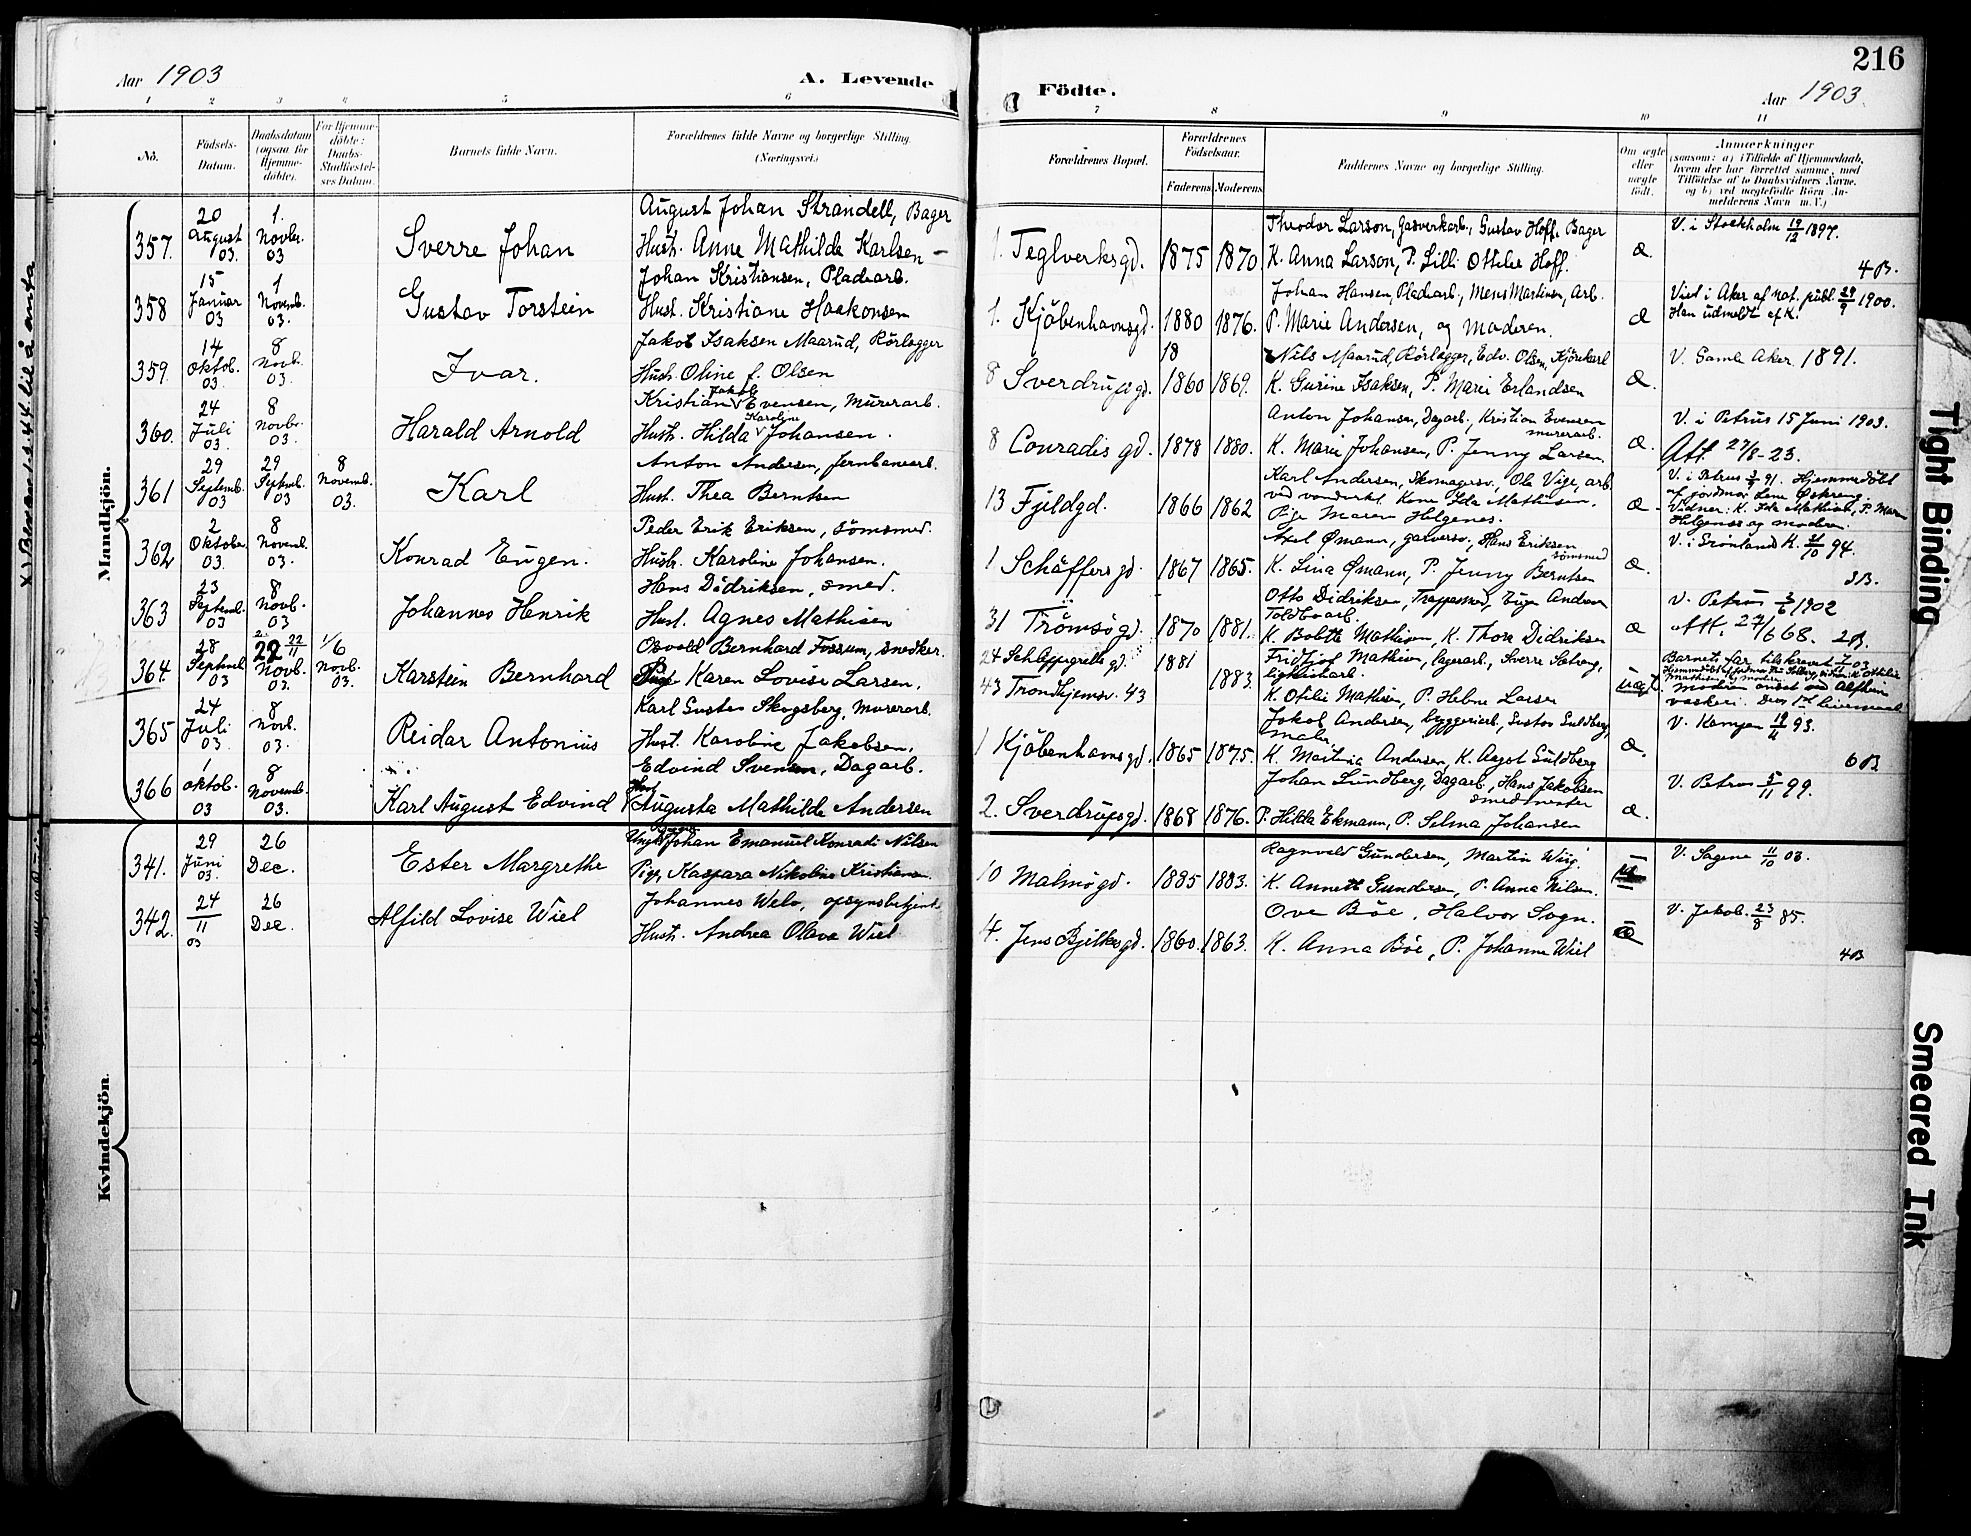 216
Aar 1903
A. Levende
Födte.
Aar 1903.
1 2 3 4 5 6 7 8 9 10 11
No.
Födsels-
Datum.
Daabsdatum
(ogsaa for
Hjemme-
döbte).
For Hjemme-
döbte:
Daabs-
Stadfæstel-
ses Datum.
Barnets fulde Navn.
Forældrenes fulde Navne og borgerlige Stilling.
(Næringsvei.)
Forældrenes Bopæl.
Forældrenes
Födselsaar.
Faderens Moderens
Faddernes Navne og borgerlige Stilling.
Om ægte
eller
uægte
födt.
Anmærkninger
(saasom: a) i Tilfælde af Hjemmedaab,
hvem der har forrettet samme, med
Tilföielse af to Daabsvidners Navne,
og b) ved uægtefödte Börn An-
melderens Navn m. V.)
Mandkjön.
357.
20
August
03.
1.
Novbr.
03
Sverre Johan
August Johan Strandell, Bager
Hust. Anne Mathilde Karlsen
1. Teglverksgd.
1875 1870
Theodor Larson, Gasverkarb., Gustav Hoff, Bager
K. Anna Larson, P. Lilli Ottilie Hoff.
æ
V. i Stockholm 19/12 1897.
4 B.
358
15
Januar
03
1
Novemb.
03.
Gustav Torstein
Johan Kristiansen, Pladsarb.
Hust. Kristiane Haakonsen
1. Kjöbenhavnsgd.
1880 1876.
Johan Hansen, Pladsarb., Mens Martinsen, Arb.
P. Marie Andersen, og Moderen.
æ
Viet i Aker af not. publ. 29/9 1900.
Han udmeldt af K.
359.
14
Oktob.
03.
8
Novb.
03.
Ivar.
Jakob Isaksen Maarud, Rörlægger
Hust. Oline f. Olsen
8 Sverdrupsgd.
18
1860 1869.
Nils Maarud, Rörlægger, Edv. Olsen, Kjörekarl
K. Gurine Isaksen, P. Marie Erlandsen
æ.
V. Gamle Aker 1891.
360.
24
Juli
03
8
Novbr.
03.
Harald Arnold
Kristian Jakob Evensen, Murerarb.
Hust. Hilda Karoline Johansen.
8 Conradis gd.
1878 1880.
Anton Johansen, Dagarb., Kristian Evensen
murerarb.
K. Marie Johansen, P. Jenny Larsen.
æ.
V. i Petrus 15 Juni 1903.
Att. 27/8-23.
361
29
Septemb.
03
29
Septemb.
03
8
Novemb.
03.
Karl
Anton Andersen, Jernbanearb.
Hust. Thea Berntsen
13 Fjeldgd.
1866 1862
Karl Andersen, Skomagersv., Ole Vige, arb.
Kone Ida Mathisen.
Pige Maren Helgenes.
æ.
V. i Petrus 91. Hjemmedöbt
af jordmor Lene
Vidner: K. Ida Mathisen, P. Maren
Helgenes og moderen.
362
2
Oktober
03.
8
Novemb.
03.
Konrad Eugen.
Peder Erik Eriksen, Sömsmed.
Hustr. Karoline Johansen.
1 Schäffersgd.
1867 1865.
Axel Ømann, garversv., Hans Eriksen
sömsmed
K. Lina Ømann, P. Jenny Berntsen
æ.
V. i Grönlands K. 94.
3 B.
363
23
Septemb.
03
8
Novb.
03
Johannes Henrik
Hans Didriksen, Smed.
Hust. Agnes Mathisen
31 Trömsögd.
1870 1881.
Otto Didriksen, Trappesmed,
Toldboarb.
K. Bolette Mathisen, K. Thora Didriksen
æ
V. Petrus 3/6 1902
Att. 27/6 68. 2 B.
364.
28
Septemb.
03
22 22/11
Novb.
03.
1/6
Novb.
03.
Karstein Bernhard
Osvald Bernhard Fossum, snedker.
Pige Karen Lovise Larsen.
24 Schleppegrells gd.
43 Trondhjemsv. 43
1881
1883.
Fridtjof Mathisen, lagerarb., Sverre
K. Otilie Mathisen, P. Helene Larsen
uægt.
Barnets far tilskrevet 7/11 03
365
24
Juli
03.
8
Novb.
03.
Reidar Antonius
Karl Gustav Skogsberg, Murerarb.
Hust. Karoline Jakobsen.
1 Kjöbenhavnsgd.
1865 1875.
Jakob Andersen, byggeriarb., Gustav Guldberg,
maler
K. Martinia Andersen, K. Aagot Guldberg
æ.
V. Kampen 93.
6 B.
366
1
Oktob.
03
8
Novemb.
03.
Karl August Edvind
Edvind Svensen, Dagarb.
Hust. Augusta Mathilde Andersen
2. Sverdrupsgd.
1868 1876.
Johan Lundberg, Dagarb., Hans Jakobsen
smedmester
P. Hilda Ekmann, P. Selma Johansen
æ.
V. Petrus 5/11 99.
Kvindekjön.
341.
29
Juni
03.
26
Dec.
Ester Margrethe
Ungk. Johan Emanuel Konradi Nilsen
Pige Kaspara Nikoline Kristiansen
10 Malmögd.
1885 1883.
Ragnvald Gundersen, Martin Wiig.
K. Annette Gundersen, P. Anna Nilsen.
V. Sagene 11/10 03.
342.
24
11
03
26
Dec.
Alfild Lovise Wiel
Johannes Welo, opsynsbetjent
Hust. Andrea Olava Wiel
4. Jens Bjelkesgd.
1860. 1863.
Ove Böe, Halvor Sogn.
K. Anna Böe, P. Johanne Wiel
æ
V. Jakob. 23/8 85.
4 B
Tight Binding
Smeared Ink